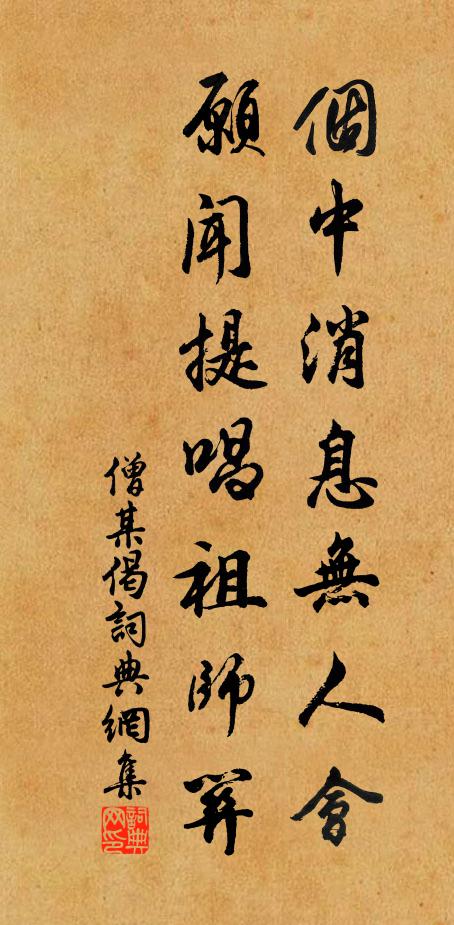 個中消息無人會
願聞提唱祖師
僧某偈詞典網集
詞典
网印